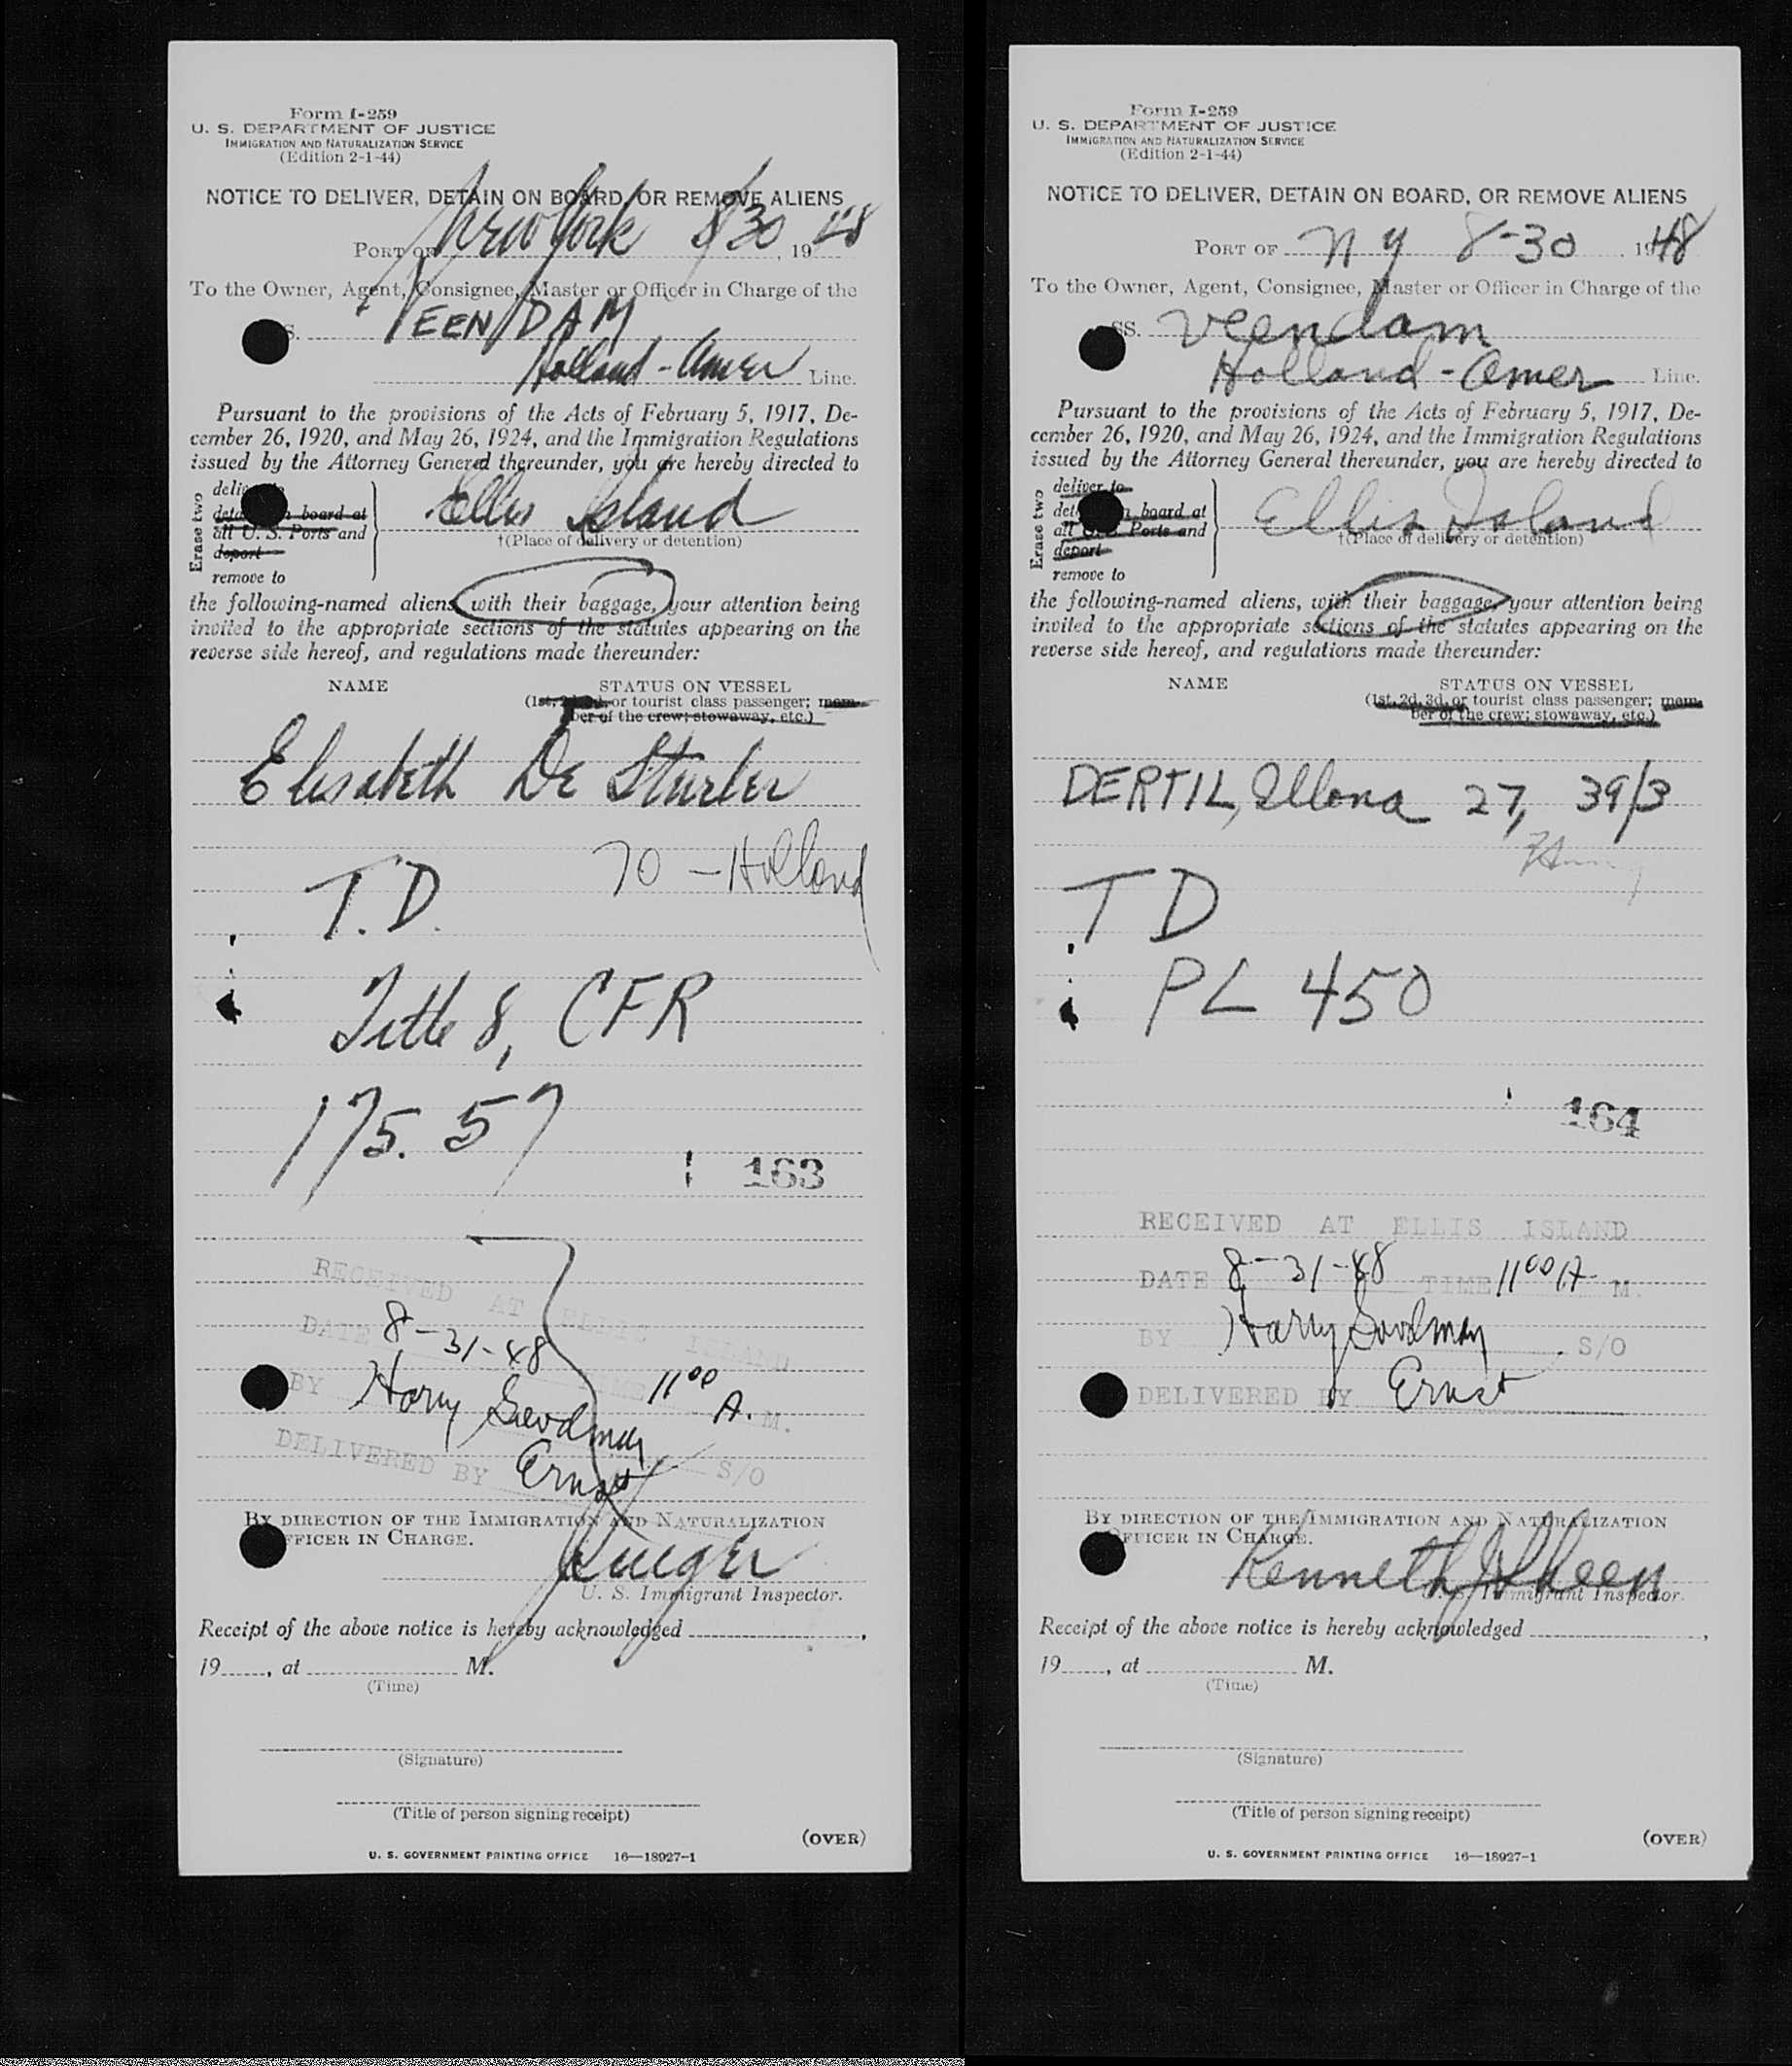 Form I-259
U. S. DEPARTMENT OF JUSTICE
IMMIGRATION AND NATURALIZATION SERVICE
(Edition 2-1-44)
NOTICE TO DELIVER, DETAIN ON BOARD, OR REMOVE ALIENS
PORT OF New York 8/30, 1948
To the Owner, Agent, Consignee, Master or Officer in Charge of the
S. VEENDAM
Holland-Amer Line.
Pursuant to the provisions of the Acts of February 5, 1917, De-
cember 26, 1920, and May 26, 1924, and the Immigration Regulations
issued by the Attorney General thereunder, you are hereby directed to
Erase two
board at
all U. S. Ports and
deport
remove to
Ellis Island
†(Place of delivery or detention)
the following-named aliens, with their baggage, your attention being
invited to the appropriate sections of the statutes appearing on the
reverse side hereof, and regulations made thereunder:
NAME STATUS ON VESSEL
(1st, 2d, 3d, or tourist class passenger; mem-
ber of the crew; stowaway, etc.)
Elisabeth De Sturler
70 - Holland
T.D.
Title 8, CFR
175.57
163
RECEIVED AT ELLIS ISLAND
DATE 8-31-48 TIME 11 00 A. M.
BY Harry Goodman S/O
DELIVERED BY Ernst
BY DIRECTION OF THE IMMIGRATION AND NATURALIZATION
OFFICER IN CHARGE.
U. S. Immigrant Inspector.
Receipt of the above notice is hereby acknowledged ,
19 , at M.
(Time)
(Signature)
(Title of person signing receipt)
(OVER)
U. S. GOVERNMENT PRINTING OFFICE 16—18927-1
Form I-259
U. S. DEPARTMENT OF JUSTICE
IMMIGRATION AND NATURALIZATION SERVICE
(Edition 2-1-44)
NOTICE TO DELIVER, DETAIN ON BOARD, OR REMOVE ALIENS
PORT OF N Y 8-30 1948
To the Owner, Agent, Consignee, Master or Officer in Charge of the
SS. Veendam
Holland-Amer Line.
Pursuant to the provisions of the Acts of February 5, 1917, De-
cember 26, 1920, and May 26, 1924, and the Immigration Regulations
issued by the Attorney General thereunder, you are hereby directed to
Erase two
deliver to
board at
all U. S. Ports and
deport
remove to
Ellis Island
†(Place of delivery or detention)
the following-named aliens, with their baggage, your attention being
invited to the appropriate sections of the statutes appearing on the
reverse side hereof, and regulations made thereunder:
NAME STATUS ON VESSEL
(1st, 2d, 3d, or tourist class passenger; mem-
ber of the crew; stowaway, etc.)
DERTIL, Illona 27, 39/3
T D
PL 450
164
RECEIVED AT ELLIS ISLAND
DATE 8-31-48 TIME 11 00 A M.
BY Harry Goodman S/O
DELIVERED BY Ernst
BY DIRECTION OF THE IMMIGRATION AND NATURALIZATION
OFFICER IN CHARGE.
Kenneth
U. S. Immigrant Inspector.
Receipt of the above notice is hereby acknowledged ,
19 , at M.
(Time)
(Signature)
(Title of person signing receipt)
(OVER)
U. S. GOVERNMENT PRINTING OFFICE 16—18927-1